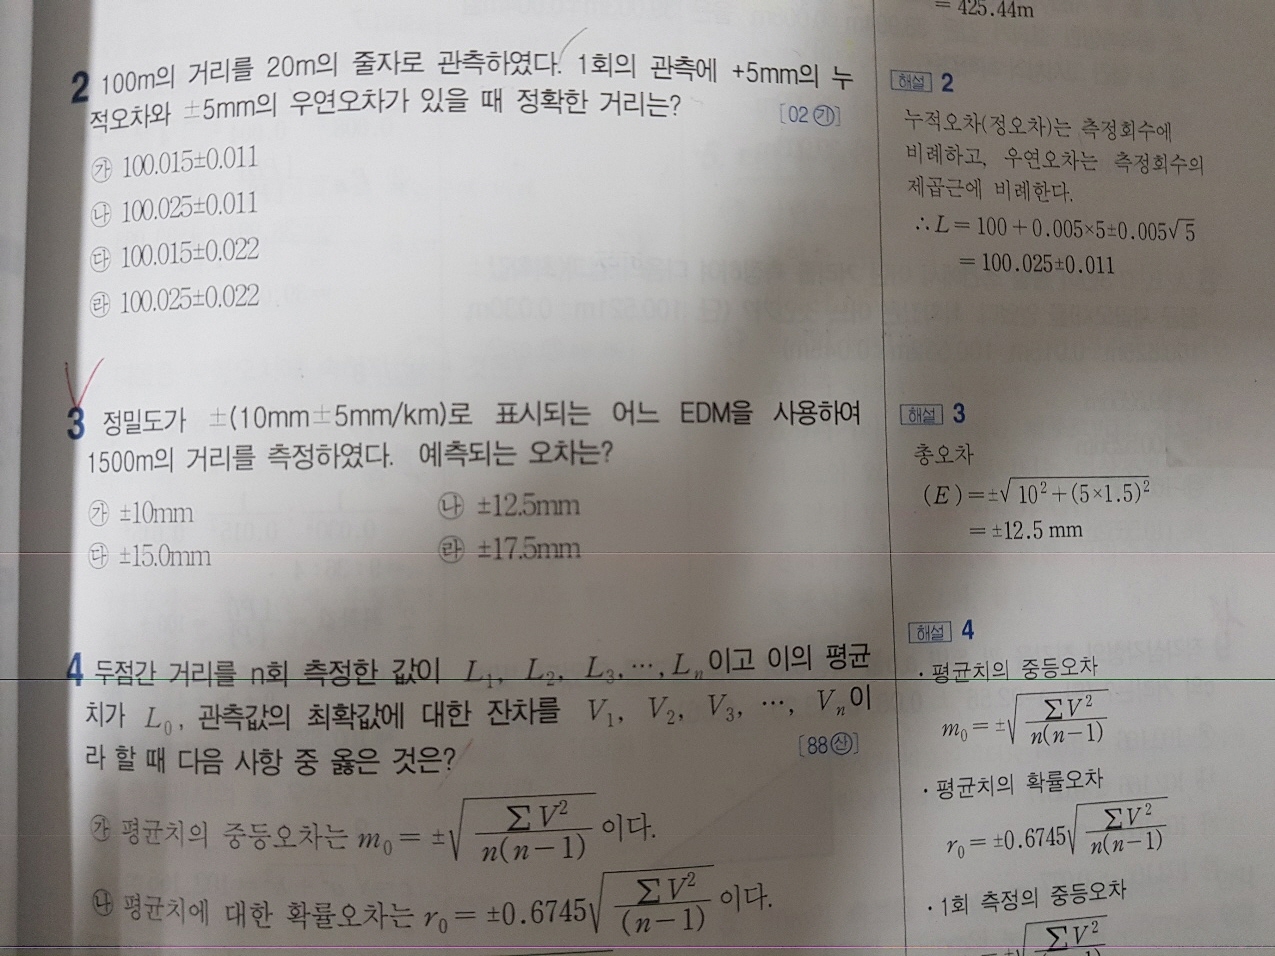 = 425.44m
2 100m의 거리를 20m의 줄자로 관측하였다. 1회의 관측에 +5mm의 누
적오차와 ±5mm의 우연오차가 있을 때 정확한 거리는?
[02㉮]
㉮ 100.015±0.011
㉯ 100.025±0.011
㉰ 100.015±0.022
㉱ 100.025±0.022
3 정밀도가 ±(10mm±5mm/km)로 표시되는 어느 EDM을 사용하여
1500m의 거리를 측정하였다. 예측되는 오차는?
㉮ ±10mm ㉯ ±12.5mm
㉰ ±15.0mm ㉱ ±17.5mm
4 두점간 거리를 n회 측정한 값이 L₁, L₂, L₃, ⋯, Lₙ이고 이의 평균
치가 L₀, 관측값의 최확값에 대한 잔차를 V₁, V₂, V₃, ⋯, Vₙ이
라 할 때 다음 사항 중 옳은 것은?
[88㉦]
㉮ 평균치의 중등오차는 m₀ = ±√(ΣV²/n(n−1)) 이다.
㉯ 평균치에 대한 확률오차는 r₀ = ±0.6745√(ΣV²/(n−1)) 이다.
해설 2
누적오차(정오차)는 측정회수에
비례하고, 우연오차는 측정회수의
제곱근에 비례한다.
∴ L = 100 + 0.005×5±0.005√5
= 100.025±0.011
해설 3
총오차
(E) = ±√(10² + (5×1.5)²)
= ±12.5 mm
해설 4
· 평균치의 중등오차
m₀ = ±√(ΣV²/n(n−1))
· 평균치의 확률오차
r₀ = ±0.6745√(ΣV²/n(n−1))
· 1회 측정의 중등오차